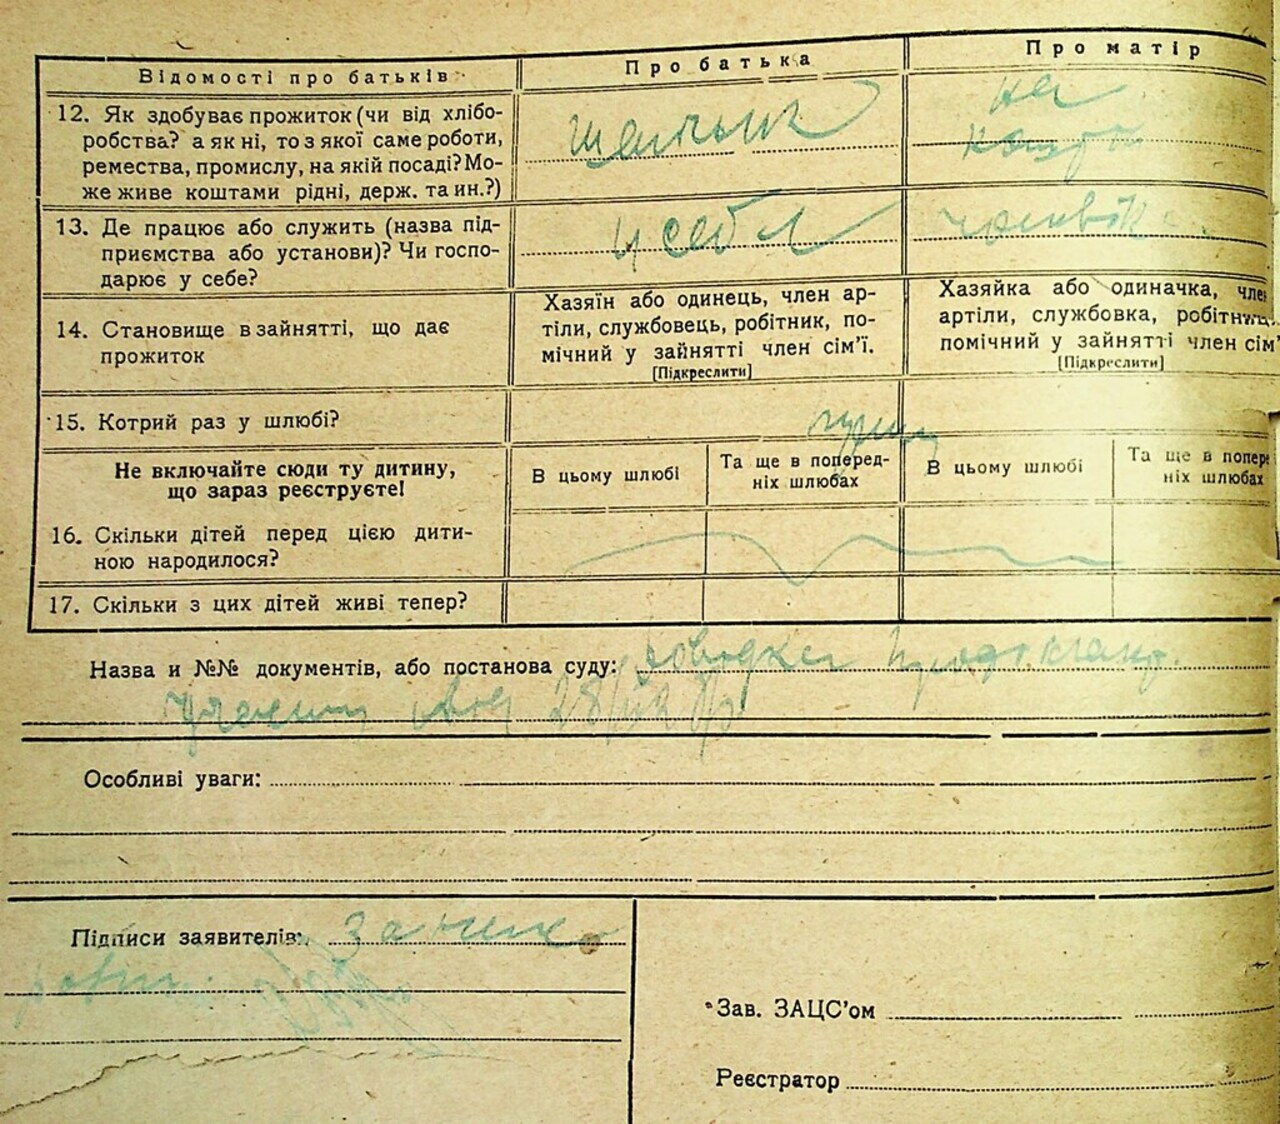 Відомості про батьків
Про батька
Про матір
12. Як здобуває прожиток (чи від хлібо-
робства? а як ні, то з якої саме роботи,
ремества, промислу, на якій посаді? Мо-
же живе коштами рідні, держ. та ин.?)
на
кошти
13. Де працює або служить (назва під-
приємства або установи)? Чи госпо-
дарює у себе?
у себе
чоловіка
14. Становище в зайнятті, що дає
прожиток
Хазяїн або одинець, член ар-
тіли, службовець, робітник, по-
мічний у зайнятті член сім'ї.
[Підкреслити]
Хазяйка або одиначка, член
артіли, службовка, робітниця,
помічний у зайнятті член сім'
[Підкреслити]
15. Котрий раз у шлюбі?
Не включайте сюди ту дитину,
що зараз реєструєте!
В цьому шлюбі
Та ще в поперед-
ніх шлюбах
В цьому шлюбі
Та ще в попере
ніх шлюбах
16. Скільки дітей перед цією дити-
ною народилося?
17. Скільки з цих дітей живі тепер?
Назва и №№ документів, або постанова суду: довідка
28/
Особливі уваги:
Підписи заявителів:
Зав. ЗАЦС'ом
Реєстратор